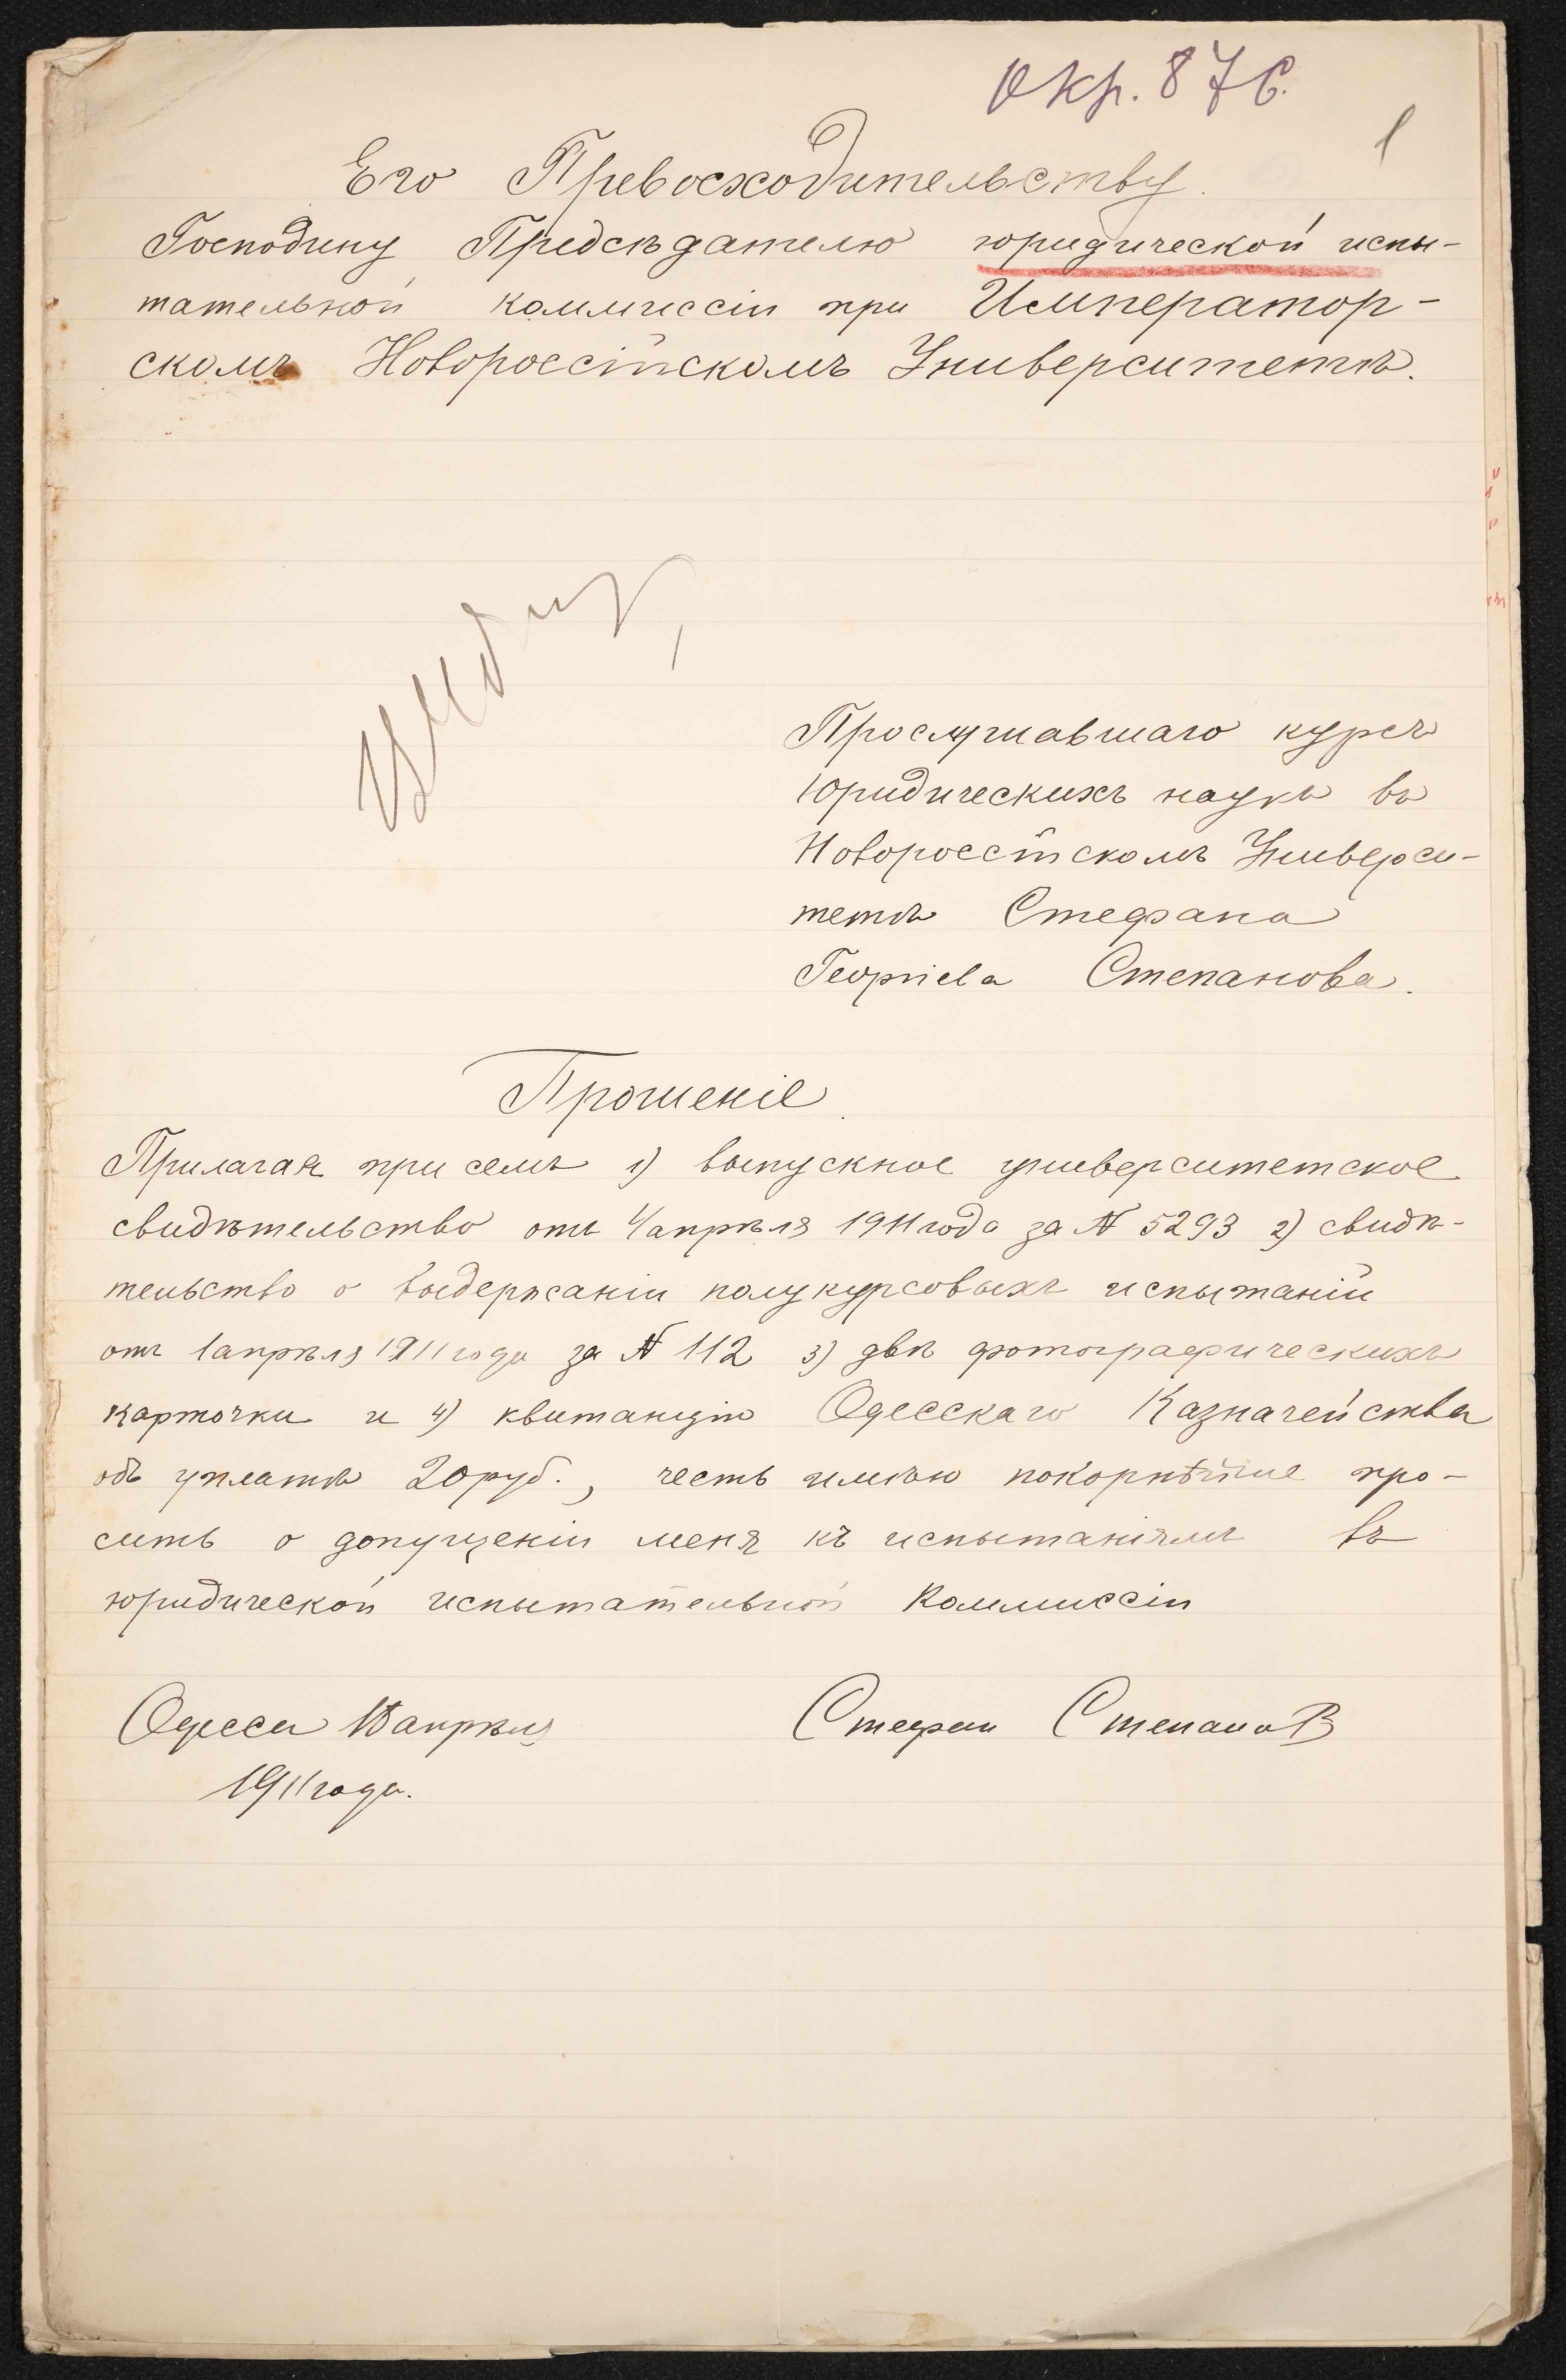 окр. 876.
1
Его Превосходительству.
Господину Предсѣдателю юридической испы-
тательной коммиссіи при Император-
скомъ Новороссійскомъ Университетѣ.
Прослушавшаго курсъ
Юридическихъ наукъ въ
Новороссійскомъ Универси-
тетѣ Стефана
Георгіева Степанова.
Прошеніе.
Прилагая при семъ 1) выпускное университетское
свидѣтельство отъ 4 апрѣля 1911 года за № 5293 2) свидѣ-
тельство о выдержаніи полукурсовыхъ испытаній
отъ 1 апрѣля 1911 года за № 112 3) двѣ фотографическихъ
карточки и 4) квитанцію Одесскаго Казначейства
объ уплатѣ 20 руб., честь имѣю покорнѣйше про-
сить о допущеніи меня къ испытаніямъ въ
юридической испытательной Коммиссіи
Одесса апрѣля
Стефан Степанов
1911 года.